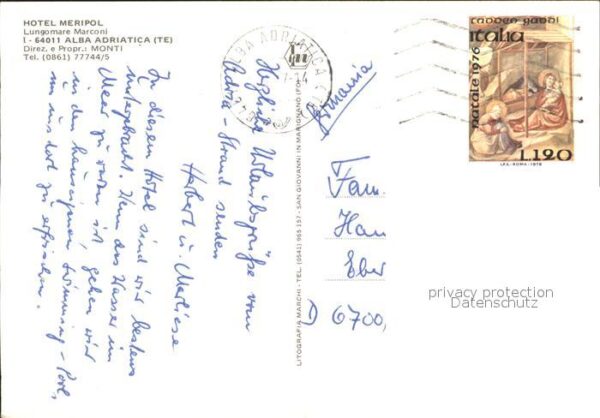 HOTEL MERIPOL
Lungomare Marconi
I - 64011 ALBA ADRIATICA (TE)
Direz. e Propr.: MONTI
Tel. (0861) 77744/5
In diesem Hotel sind wir bestens
untergebracht. Wenn das Wasser im
Meer zu warm ist, gehen wir
in den hauseigenen Swimming-Pool,
um uns dort zu erfrischen.
Herzliche Urlaubsgrüße vom
Adria-Strand senden
Herbert u. Marliese
LITOGRAFIA MARCHI - TEL. (0541) 955.157 - SAN GIOVANNI IN MARIGNANO (FO)
ALBA ADRIATICA
Germania
taddeo gaddi
italia
natale 1976
L.120
I.P.S.-ROMA-1976
Fam.
Han
Eber
D 6700,
privacy protection
Datenschutz